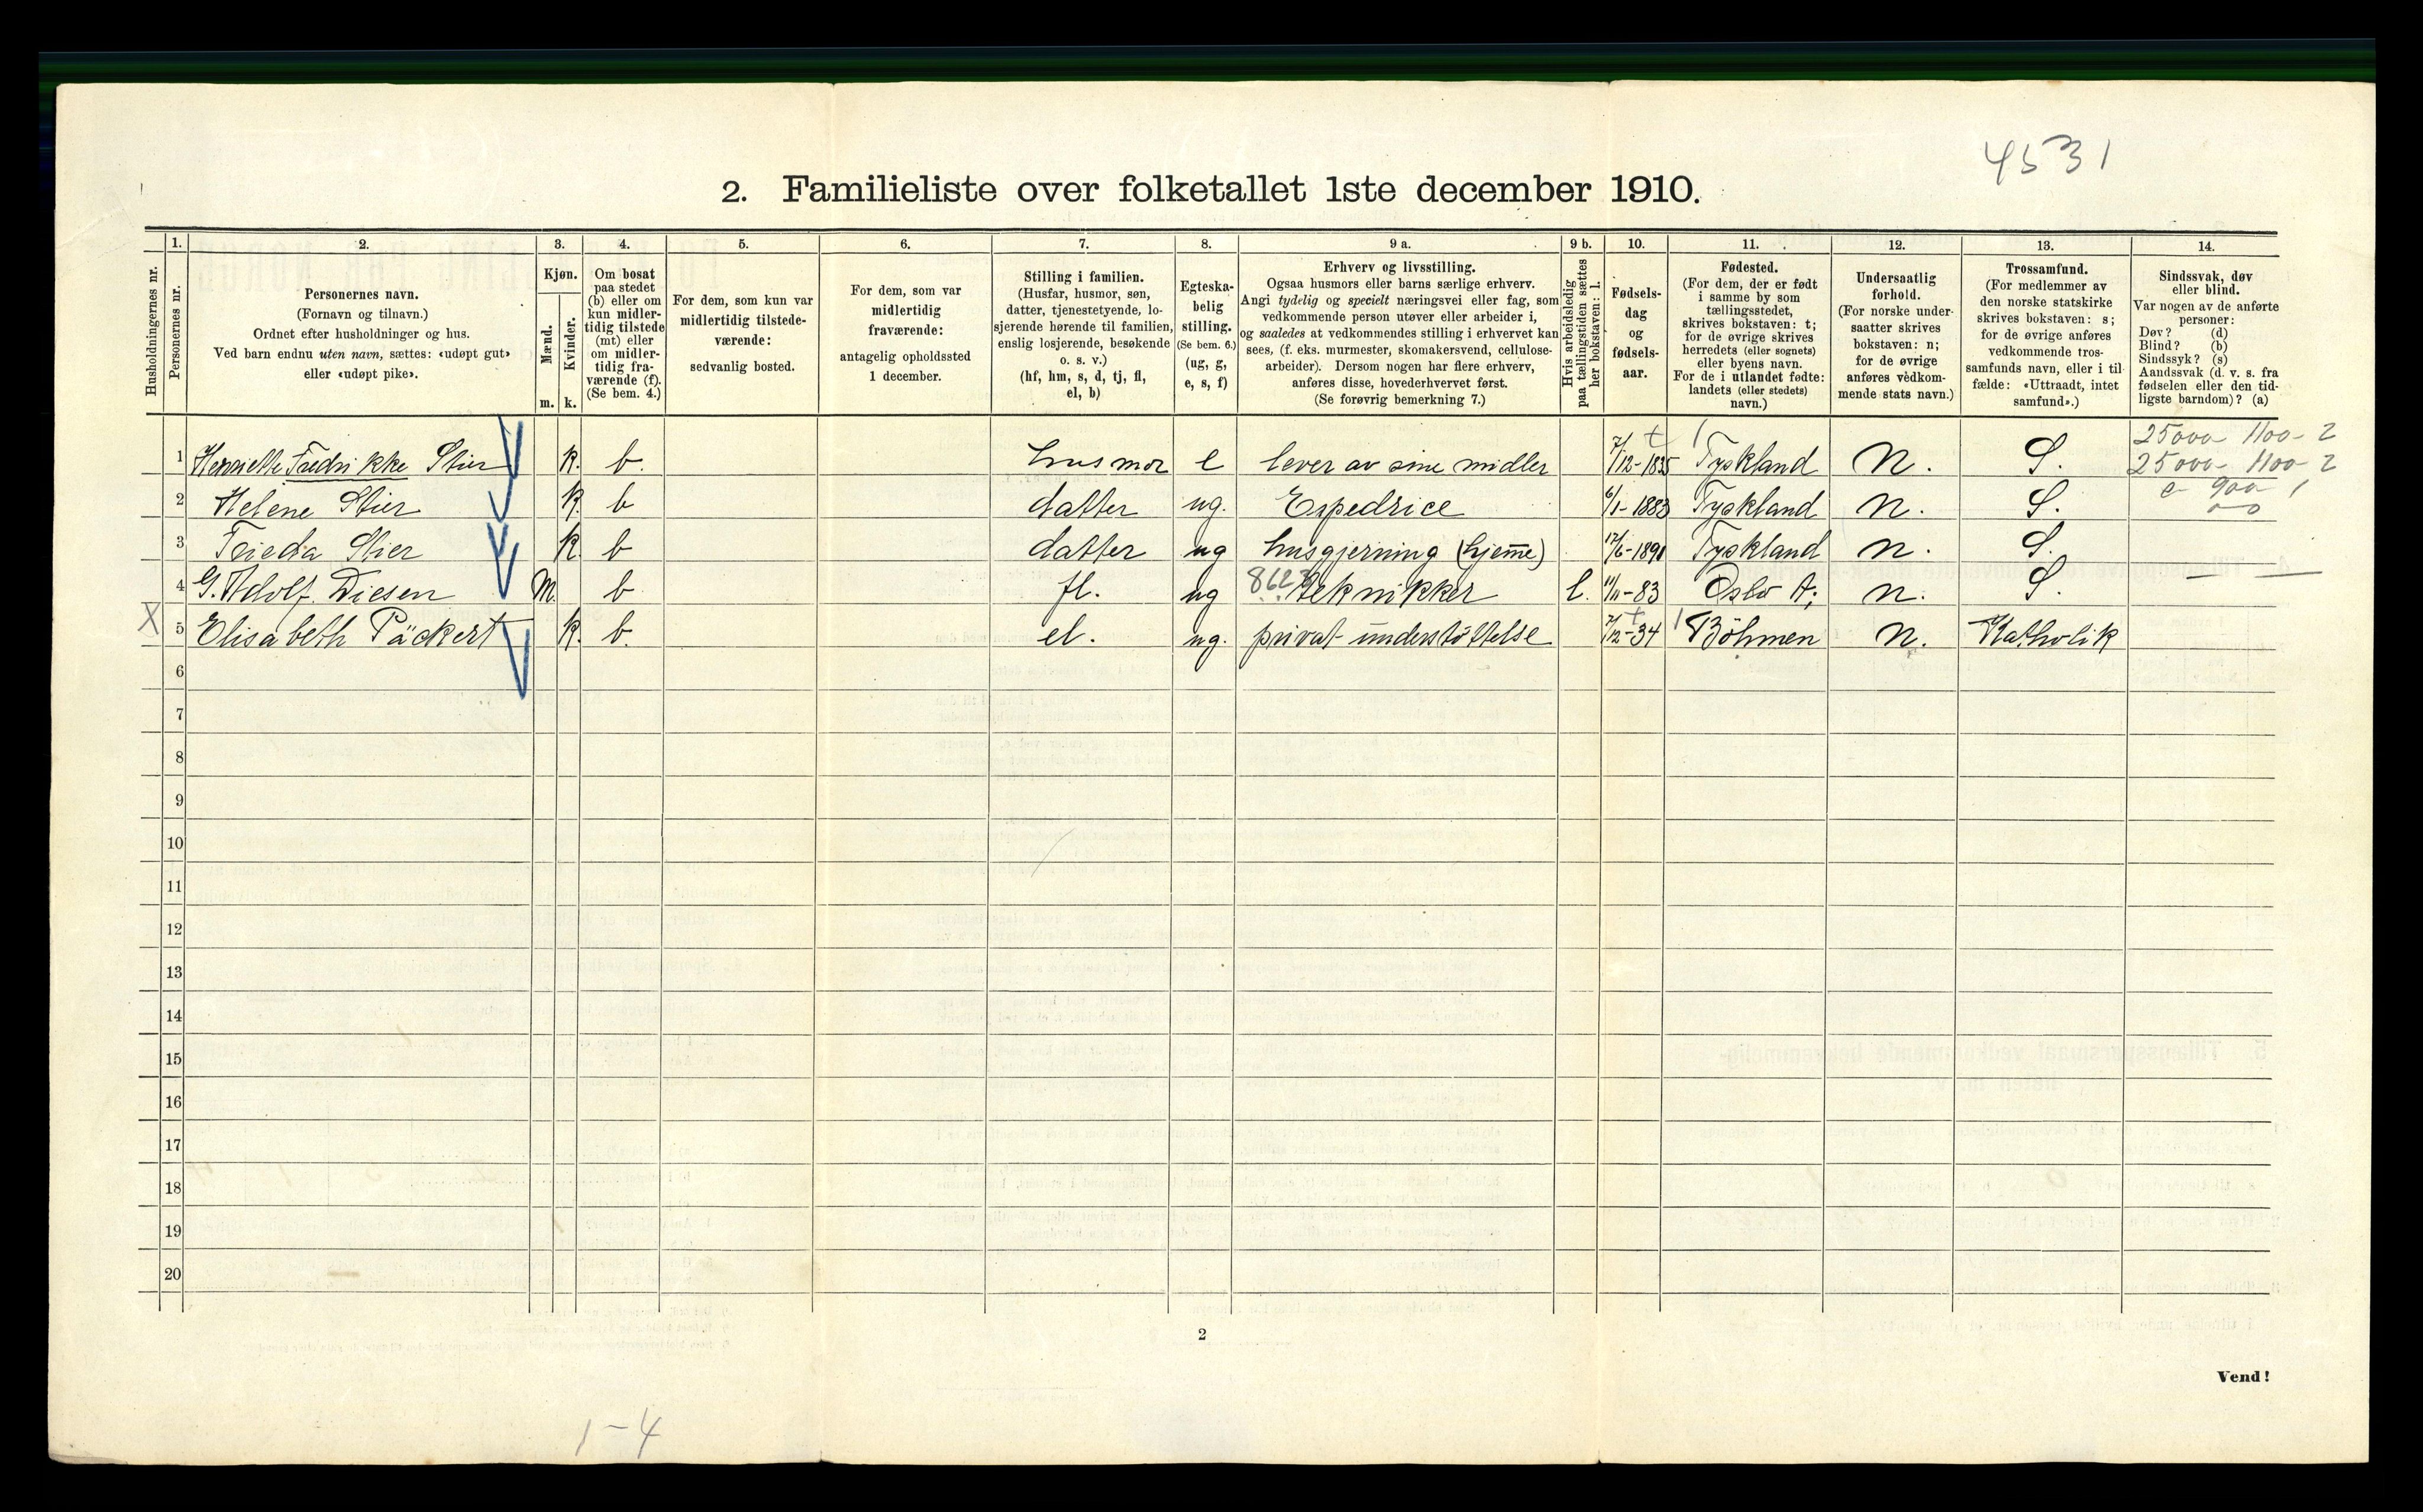 4531
2. Familieliste over folketallet 1ste december 1910.
Husholdningernes nr.
1.
Personernes nr.
2.
Personernes navn.
(Fornavn og tilnavn.)
Ordnet efter husholdninger og hus.
Ved barn endnu uten navn, sættes: «udøpt gut»
eller «udøpt pike».
3.
Kjøn.
Mænd.
Kvinder.
m. k.
4.
Om bosat
paa stedet
(b) eller om
kun midler-
tidig tilstede
(mt) eller
om midler-
tidig fra-
værende (f).
(Se bem. 4.)
5.
For dem, som kun var
midlertidig tilstede-
værende:
sedvanlig bosted.
6.
For dem, som var
midlertidig
fraværende:
antagelig opholdssted
1 december.
7.
Stilling i familien.
(Husfar, husmor, søn,
datter, tjenestetyende, lo-
sjerende hørende til familien,
enslig losjerende, besøkende
o. s. v.)
(hf, hm, s, d, tj, fl,
el, b)
8.
Egteska-
belig
stilling.
(Se bem. 6.)
(ug, g,
e, s, f)
9 a.
Erhverv og livsstilling.
Ogsaa husmors eller barns særlige erhverv.
Angi tydelig og specielt næringsvei eller fag, som
vedkommende person utøver eller arbeider i,
og saaledes at vedkommendes stilling i erhvervet kan
sees, (f. eks. murmester, skomakersvend, cellulose-
arbeider). Dersom nogen har flere erhverv,
anføres disse, hovederhvervet først.
(Se forøvrig bemerkning 7.)
9 b.
Hvis arbeidsledig
paa tællingstiden sættes
her bokstaven: l.
10.
Fødsels-
dag
og
fødsels-
aar.
11.
Fødested.
(For dem, der er født
i samme by som
tællingsstedet,
skrives bokstaven: t;
for de øvrige skrives
herredets (eller sognets)
eller byens navn.
For de i utlandet fødte:
landets (eller stedets)
navn.)
12.
Undersaatlig
forhold.
(For norske under-
saatter skrives
bokstaven: n;
for de øvrige
anføres vedkom-
mende stats navn.)
13.
Trossamfund.
(For medlemmer av
den norske statskirke
skrives bokstaven: s;
for de øvrige anføres
vedkommende tros-
samfunds navn, eller i til-
fælde: «Uttraadt, intet
samfund».)
14.
Sindssvak, døv
eller blind.
Var nogen av de anførte
personer:
Døv? (d)
Blind? (b)
Sindssyk? (s)
Aandssvak (d. v. s. fra
fødselen eller den tid-
ligste barndom)? (a)
25000 1100- 2
1 Henriette Fredrikke Stier k. b. husmor e lever av sine midler 7/12-1835 Tyskland n. S. 25000- 1100- 2
2 Helene Stier k. b datter ug. Expedrice 6/1-1883 Tyskland n. S. e 900 1
3 Frieda Stier k. b datter ug husgjerning (hjeme) 17/6-1890 Tyskland n. S.
4 G. Adolf. Diesen m. b fl. ug 8623 teknikker l. 11/11-83 Oslo A; n. S.
X 5 Elisabeth Päckert k. b. el. ug. privat understöttelse 7/12-34 Böhmen n. Katholik
6
7
8
9
10
11
12
13
14
15
16
17
18
19
20
2
Vend!
1-4